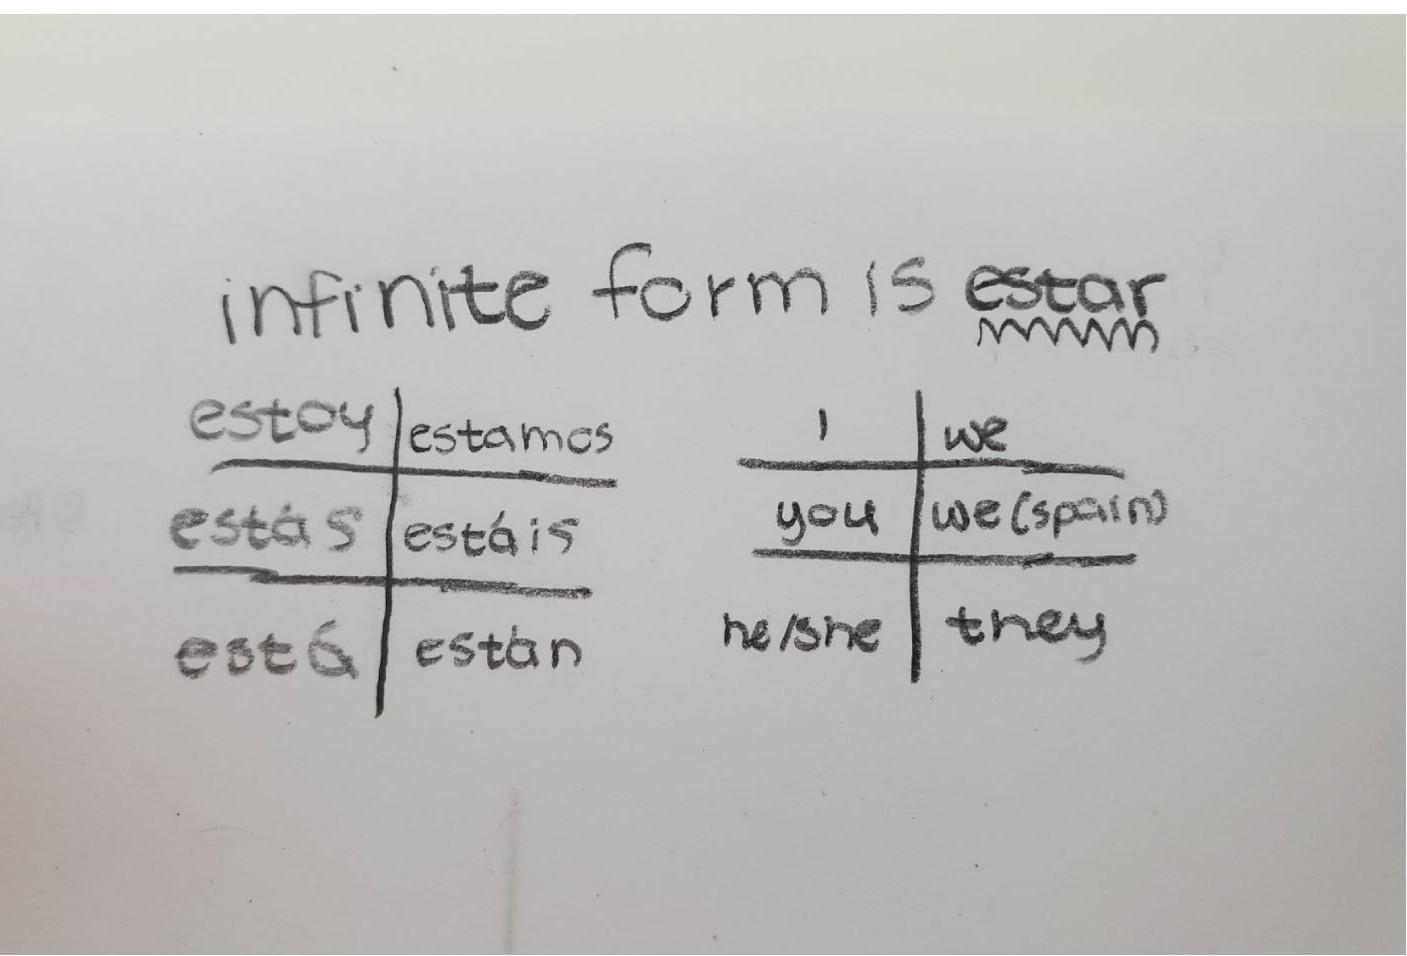 infinite form is estar
estoy estamos
estás estáis
está están
I we
you we (spain)
he/she they